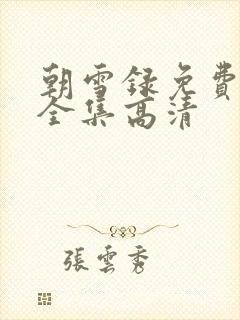 朝雪録免費
全集高清
張雲秀